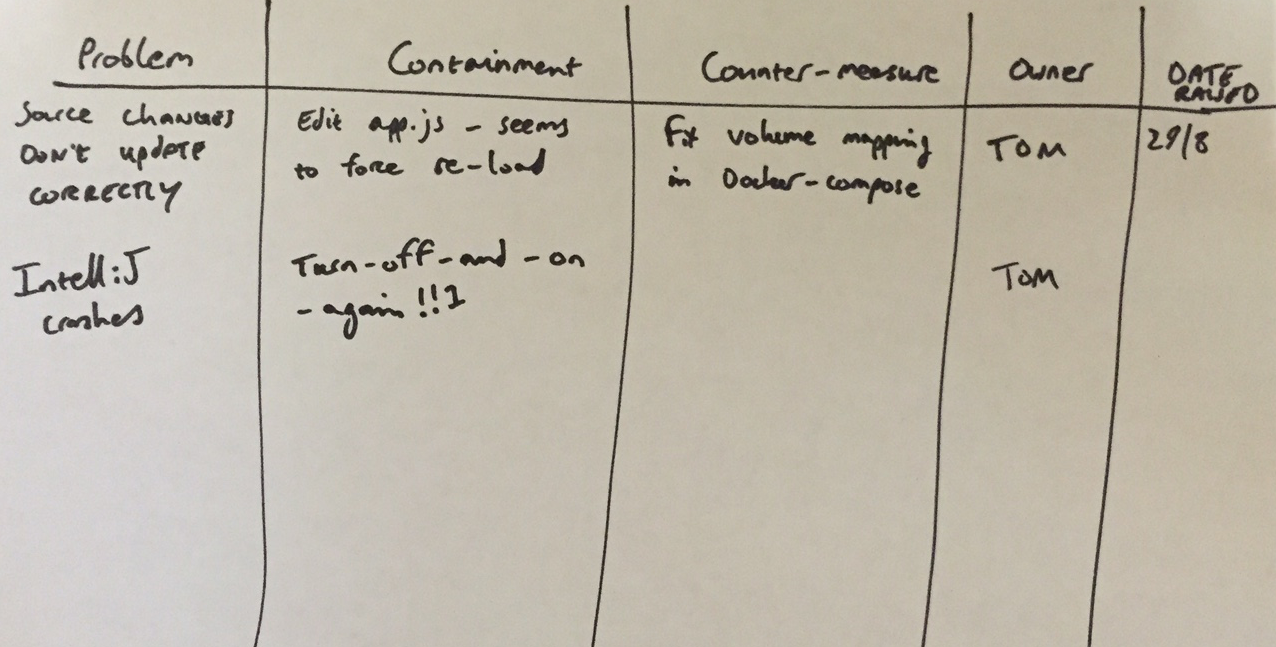 Problem
Containment
Counter-measure
Owner
DATE
RAISED
Source changes
Don't update
CORRECTLY
Edit app.js - seems
to force re-load
Fix volume mapping
in Docker-compose
TOM
29/8
IntelliJ
crashes
Turn-off-and-on
-again!!1
TOM